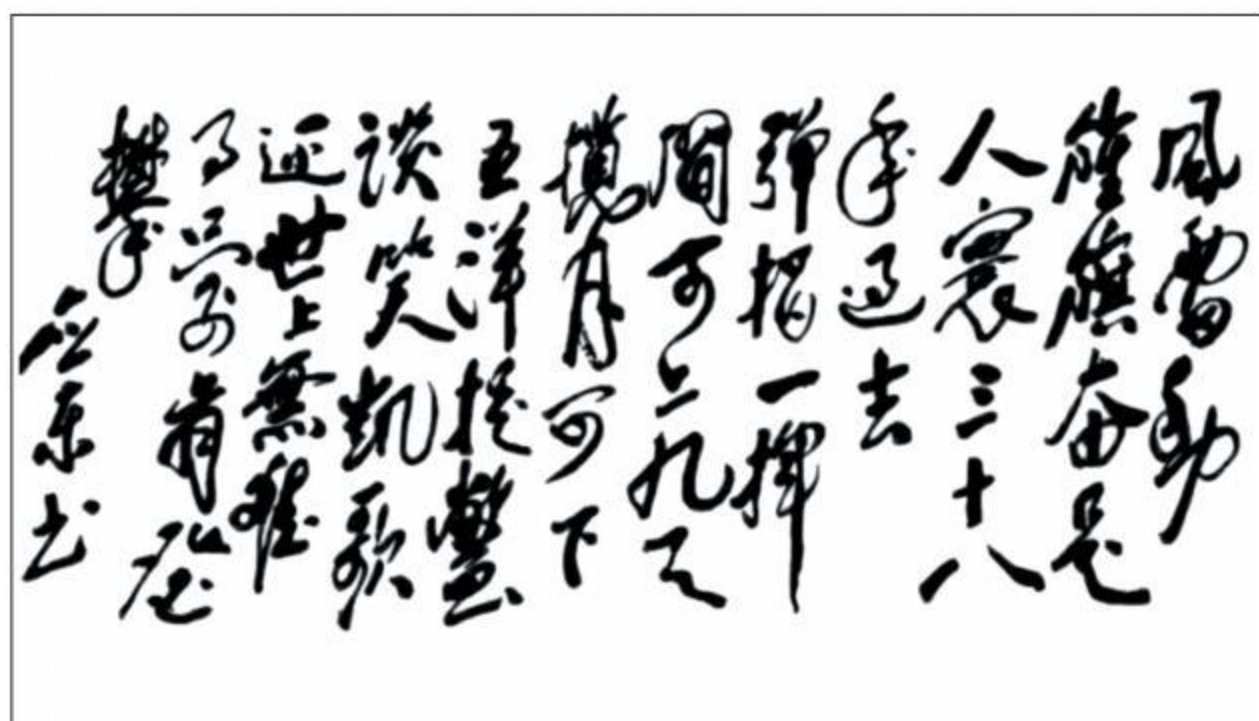 風雷動
旌旗奋是
人寰三十八
年过去
彈指一揮
間可上九天
攬月可下
五洋捉鳖
談笑凱歌
还世上無難
事只要肯登
攀
应东书